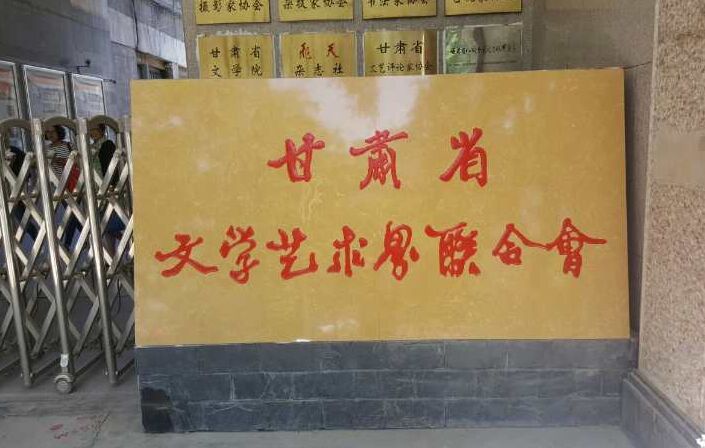 摄影家协会
杂技家协会
书法家协会
甘肃省
文学院
飞天
杂志社
甘肃省
文艺评论家协会
甘肃省
文学艺术界联合會